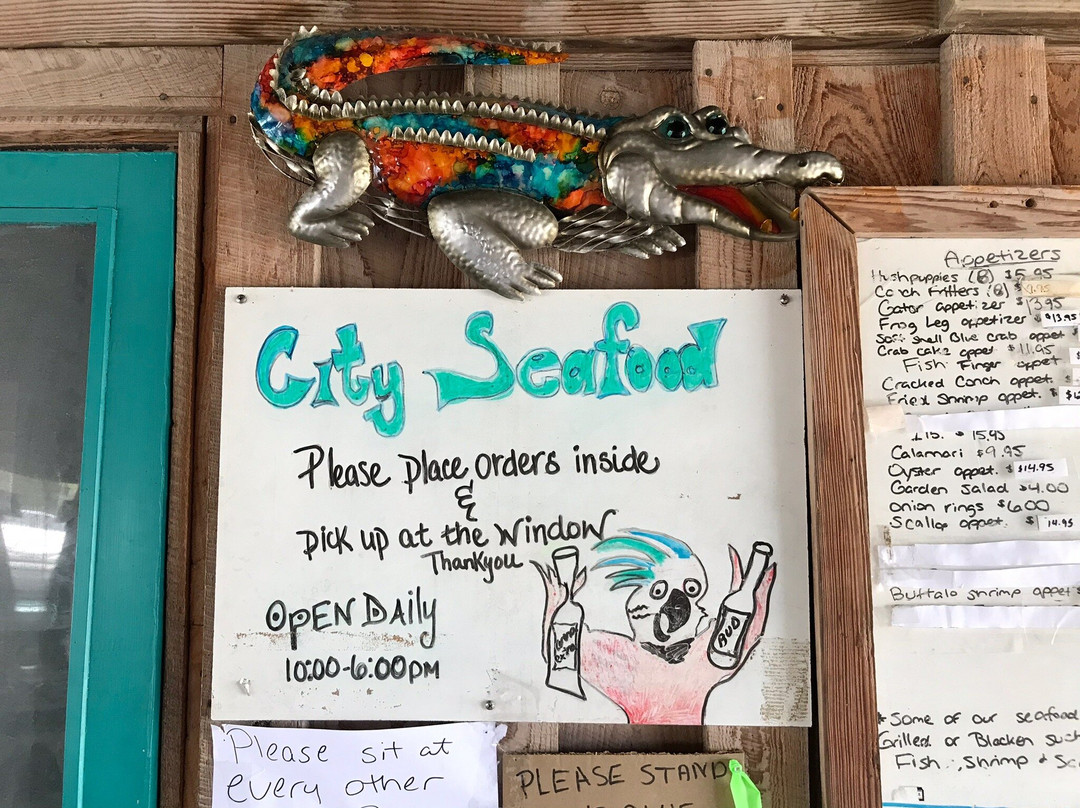 City Seafood
Please place orders inside
&
pick up at the window
Thankyou
OPEN DAILY
10:00-6:00PM
BUD
Please sit at
every other
PLEASE STAND
Appetizers
Hushpuppies (8) $5.95
Conch Fritters (8) $
Gator appetizer $13.95
Frog Leg appetizer $13.95
Soft Shell Blue Crab appet
Crab cake appet. $11.95
Fish Finger appet
Cracked Conch appet.
Fried Shrimp appet. $
Lb. $15.95
Calamari $9.95
Oyster appet. $14.95
Garden Salad $4.00
Onion rings $6.00
Scallop appet. $14.95
Buffalo shrimp appet $
* Some of our seafood
Grilled or Blacken such
Fish, Shrimp &